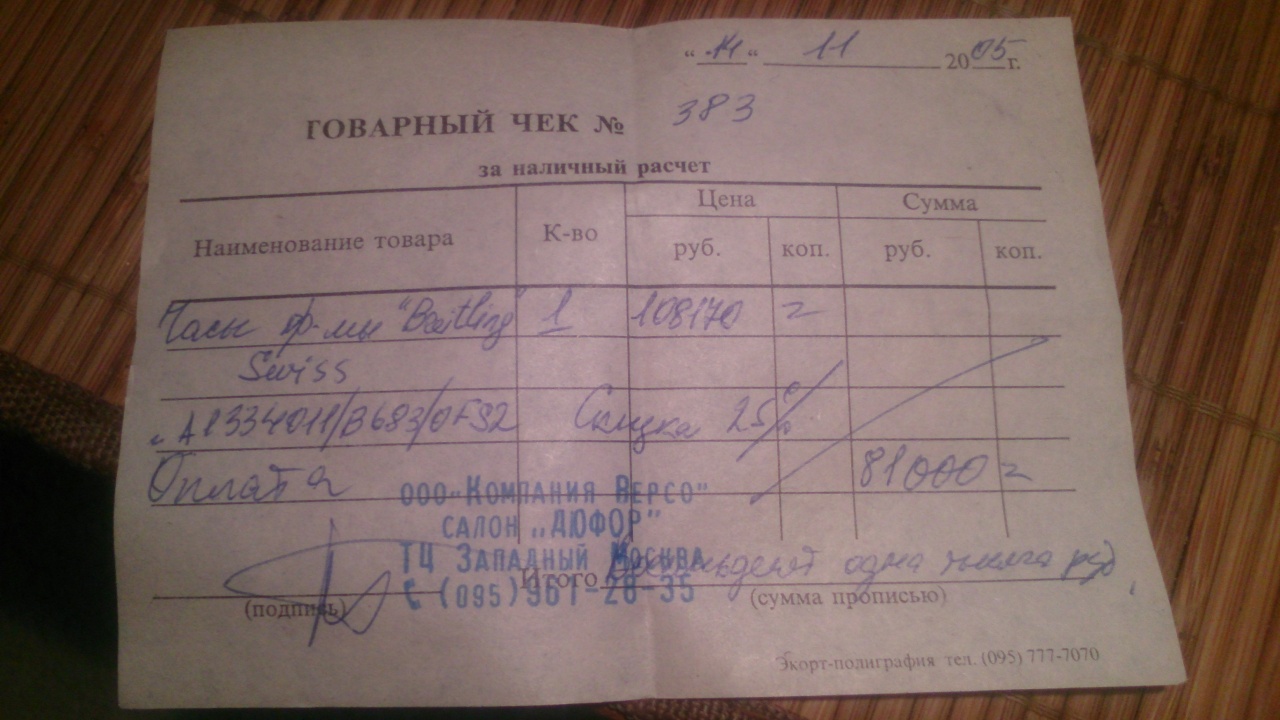 "14" 11 2005 г.
ТОВАРНЫЙ ЧЕК № 383
за наличный расчет
Наименование товара К-во Цена Сумма
руб. коп. руб. коп.
Часы ф-мы "Breitling" 1 108170 =
Swiss
"A1334011/B683/ Скидка 25%
Оплата 81000 =
ООО "КОМПАНИЯ ВЕРСО"
САЛОН "ДЮФОР"
ТЦ ЗАПАДНЫЙ МОСКВА
Итого Восемьдесят одна тысяча руб.
(095) 961-28-35
(подпись) (сумма прописью)
Экорт-полиграфия тел. (095) 777-7070